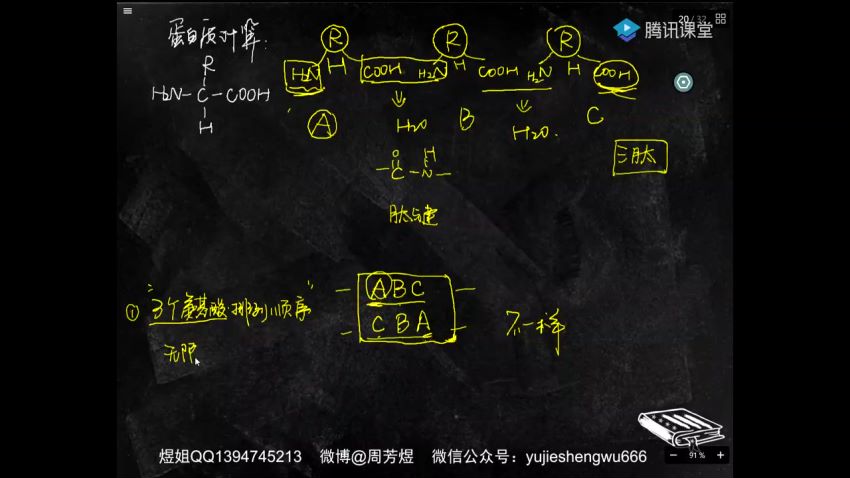 20/32
腾讯课堂
蛋白质计算:
R
H₂N-C-COOH
H
R R R
H₂N H COOH H₂N H COOH H₂N H COOH
A H₂O B H₂O. C
三肽
O H
-C-N-
肽键
① "3个氨基酸·排列顺序"
无限
-ABC-
-CBA-
不一样
煜姐QQ1394745213 微博@周芳煜 微信公众号：yujieshengwu666
91%